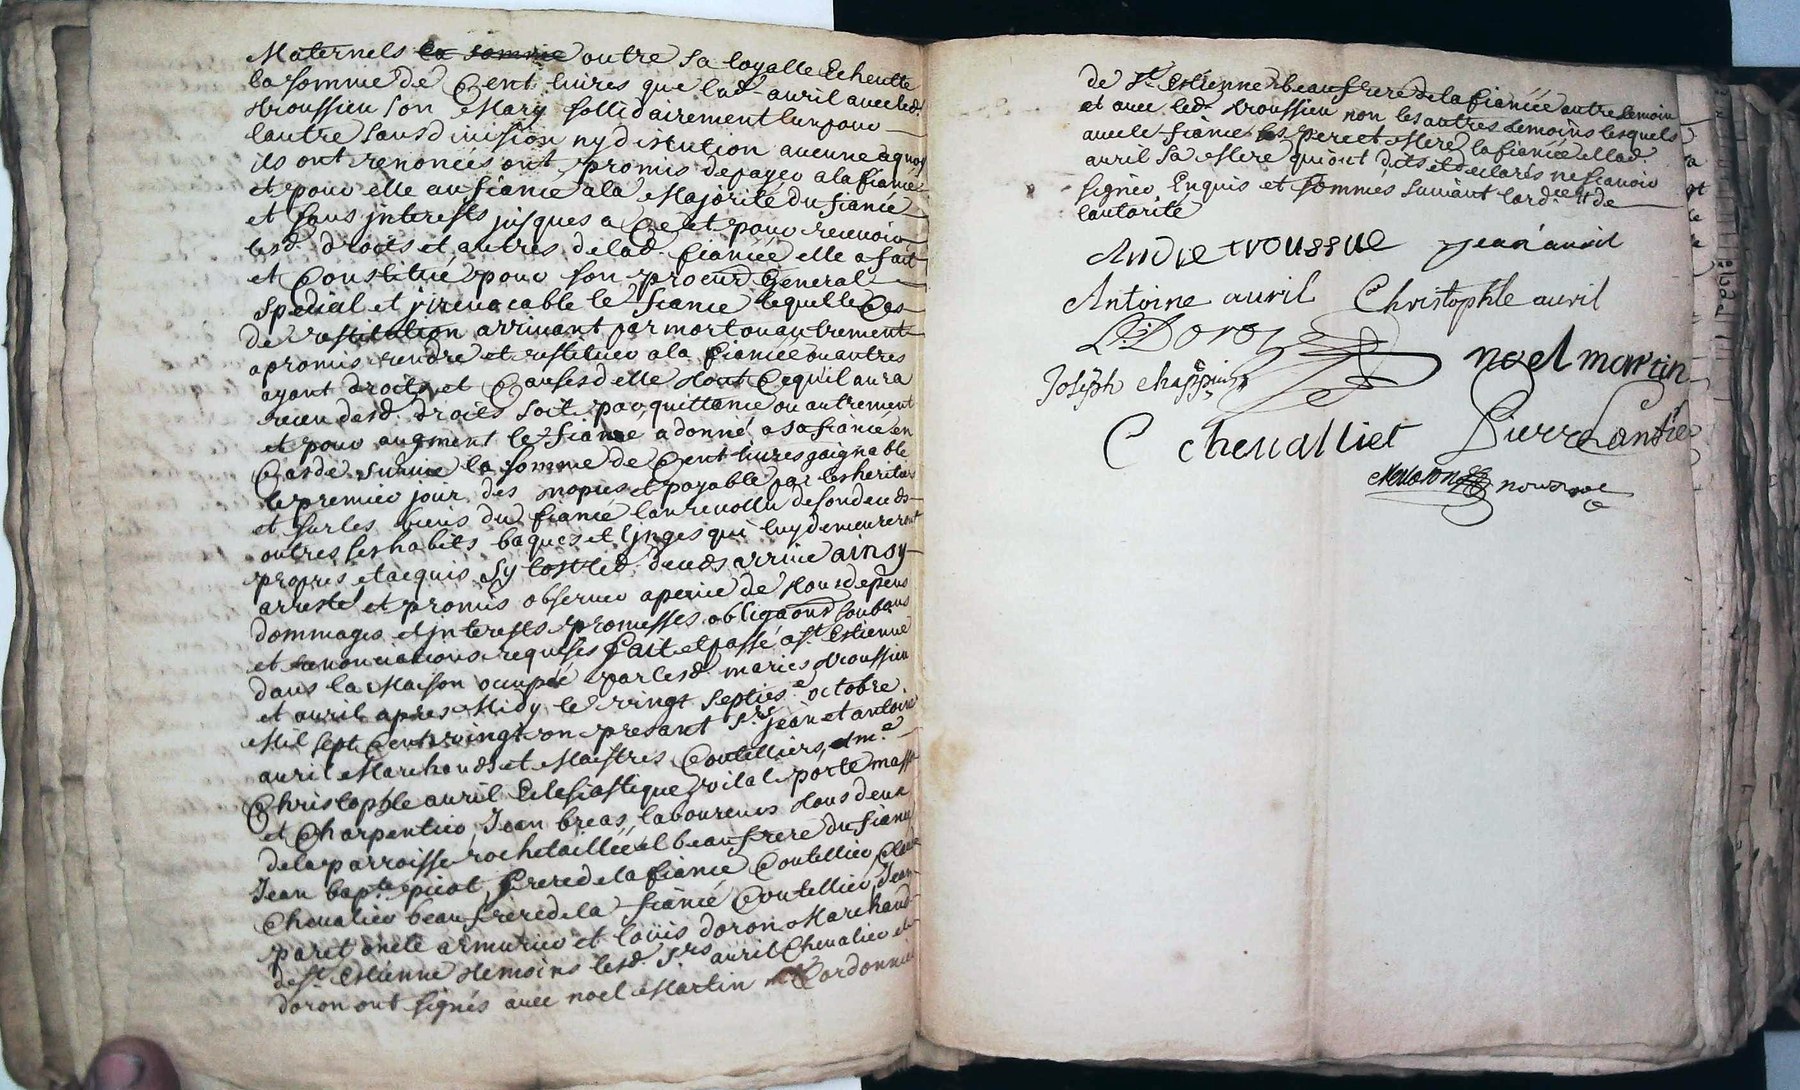 Maternels la somme outre sa loyalle Echeutte
la somme de Cent livres que lad. avril avec led.
trousssieu son Mary sollidairement lun pour
lautre sans division ny distution aucune a quoy
ils ont renoncées ont promis de payer a la fiancée
et pour elle au fiancé a la Majorité du fiancé
et sans jnterests jusques a Ce et pour recevoir
lesd. droits et autres de lad. fiancée elle a fait
et Constitué pour son procur General
special et jrrevocable le fiancé lequel le Cas
de restitution arrivant par mort ou autrement
a promis rendre et restituer a la fiancée ou autres
ayant droits et Causes d'elle tout Ce quil aura
receu desd. droits soit par quittance ou autrement
et pour augment le fiancé a donné a sa fiancée en
Cas de survie la somme de Cent livres gaignable
le premier jour des nopces et payable par les heritiers
et sur les biens du fiancé lan revollu de son deceds
outres ses habits bagues et linges qui luy demeureront
propres et acquis Sy tost led. deceds arrivé ainsy
arresté et promis observer a peine de tous depens
dommages et jnterests promesses obligaons soubmons
et renonciations requises fait et passé a St. Estienne
dans la Maison occupée par lesd. mariés trousssieu
et avril apres Midy le vingt septies.e octobre
Mil sept Cents vingt on presant srs. jean et antoine
avril Marchands et Maistres Coutelliers, et m.e
Christophle avril Eclesiastique vital porte masse
et Charpentier, Jean breas laboureurs tous deux
de la parroisse rochetaillée et beaufrere du fiancé
Jean bapte. picot frere de la fiancé Coutellier, Claude
Chevalier beaufrere de la fiancé Coutellier, Jean
paret oncle armurier et loüis doron Marchand
de St. Estienne temoins lesd. Srs. avril Chevalier et
doron ont signés avec noel Martin Cordonnier
de St. Estienne beaufrere de la fiancée autre temoin
et avec led. trousssieu non les autres temoins lesquels
avec le fiancé les pere et Mere la fiancée et lad.
avril sa Mere qui ont dits et declarés ne sçavoir
signer Enquis et sommés suivant lord.ce et de
lautorité
Andre troussue jean avril
Antoine avril Christophle avril
L. Doron
noel martin
Joseph chappuis
C chevalliet Pierre
nottaire